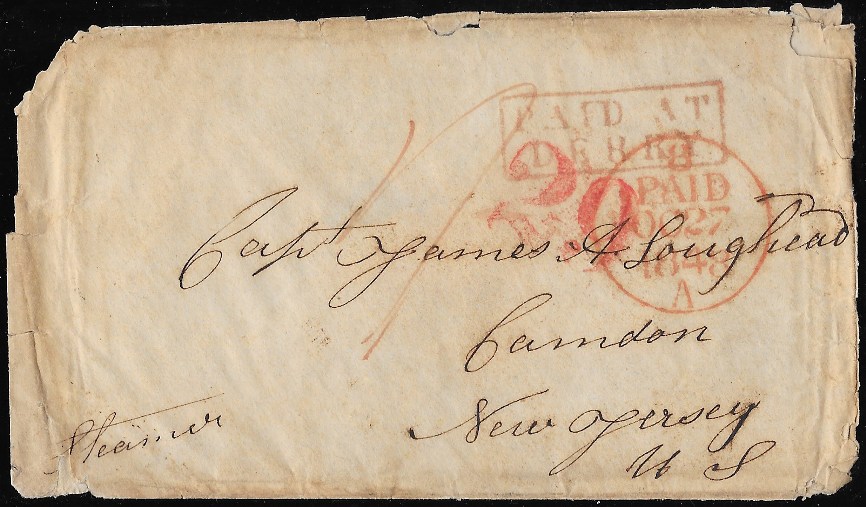 PAID AT
DERRY
29
PAID
OC 27
1848
A
1/
Capt James A Loughead
Camdon
New Jersey
U S
Steamer